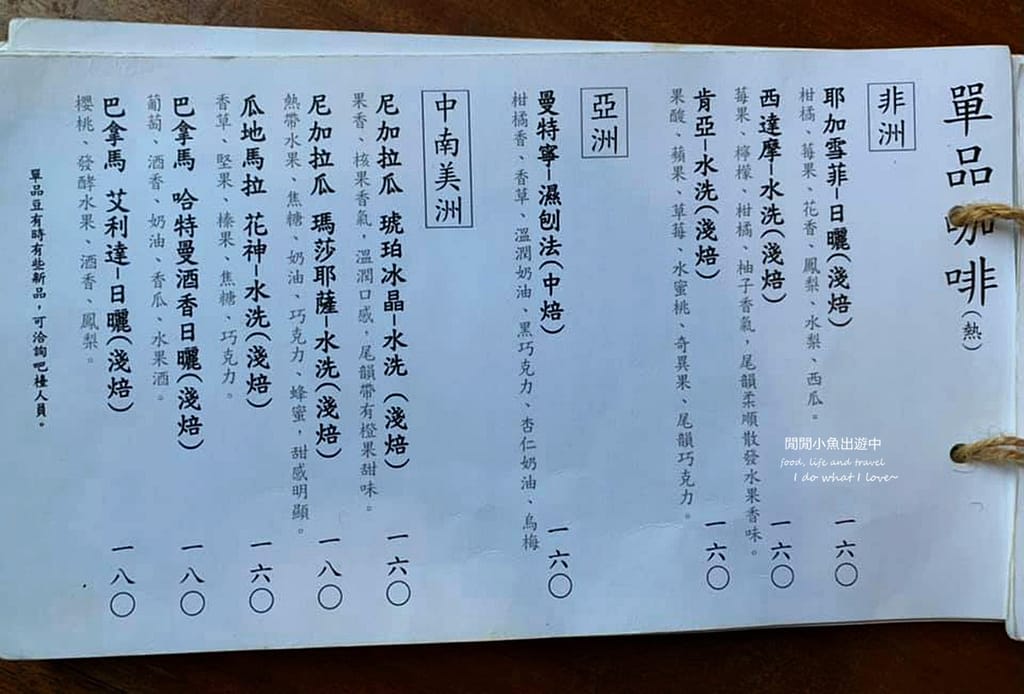 單品咖啡(熱)
非洲
耶加雪菲-日曬(淺焙) 一六〇
柑橘、莓果、花香、鳳梨、水梨、西瓜。
西達摩-水洗(淺焙) 一六〇
莓果、檸檬、柑橘、柚子香氣,尾韻柔順散發水果香味。
肯亞-水洗(淺焙) 一六〇
果酸、蘋果、草莓、水蜜桃、奇異果、尾韻巧克力。
亞洲
曼特寧-濕刨法(中焙) 一六〇
柑橘香、香草、溫潤奶油、黑巧克力、杏仁奶油、烏梅
中南美洲
尼加拉瓜 琥珀冰晶-水洗 (淺焙) 一六〇
果香、核果香氣、溫潤口感,尾韻帶有橙果甜味。
尼加拉瓜 瑪莎耶薩-水洗(淺焙) 一八〇
熱帶水果、焦糖、奶油、巧克力、蜂蜜,甜感明顯。
瓜地馬拉 花神-水洗(淺焙) 一六〇
香草、堅果、榛果、焦糖、巧克力。
巴拿馬 哈特曼酒香日曬(淺焙) 一八〇
葡萄、酒香、奶油、香瓜、水果酒。
巴拿馬 艾利達-日曬(淺焙) 一八〇
櫻桃、發酵水果、酒香、鳳梨。
單品豆有時有些新品,可洽詢吧檯人員。
閒閒小魚出遊中
food, life and travel
I do what I love~